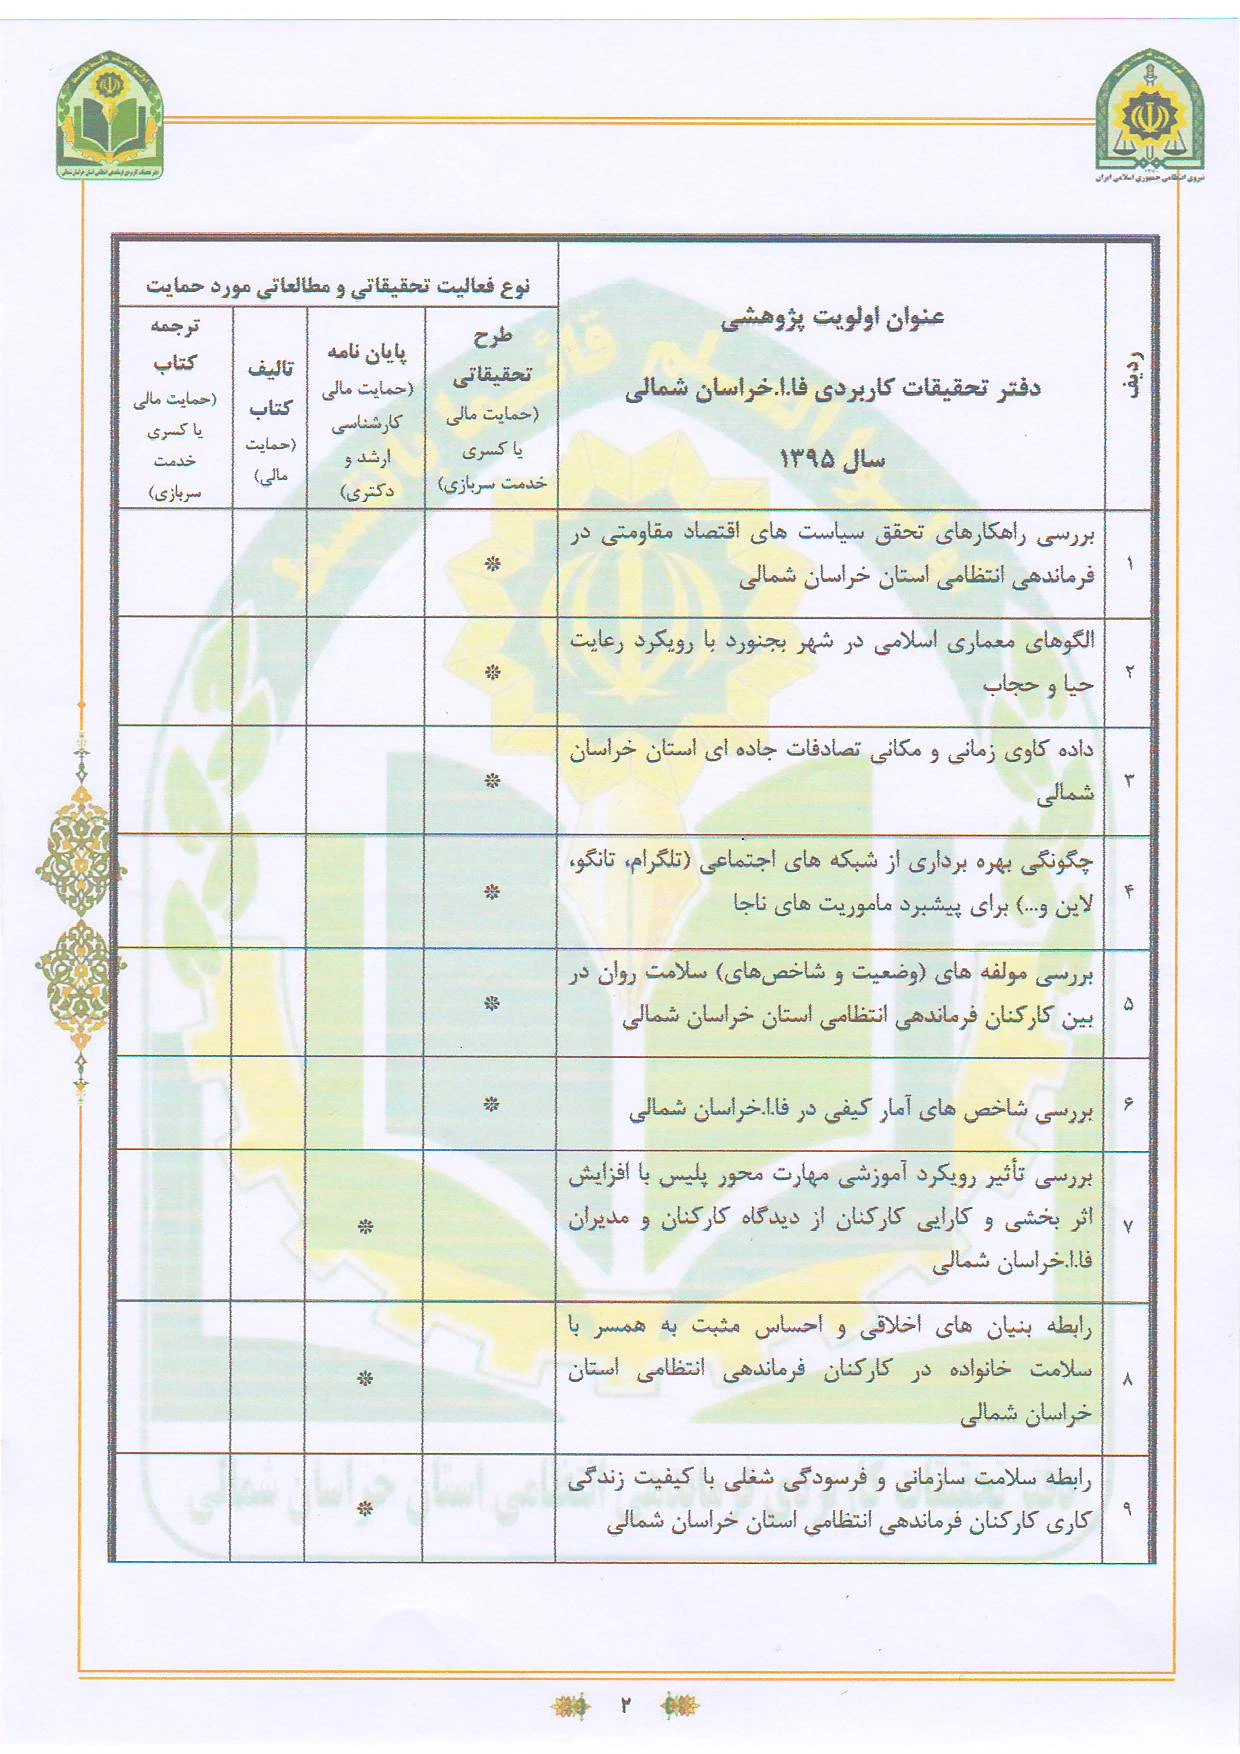 نیروی انتظامی جمهوری اسلامی ایران
ردیف
عنوان اولویت پژوهشی
دفتر تحقیقات کاربردی فا.ا.خراسان شمالی
سال ۱۳۹۵
نوع فعالیت تحقیقاتی و مطالعاتی مورد حمایت
طرح
تحقیقاتی
(حمایت مالی
یا کسری
خدمت سربازی)
پایان نامه
(حمایت مالی
کارشناسی
ارشد و
دکتری)
تالیف
کتاب
(حمایت
مالی)
ترجمه
کتاب
(حمایت مالی
یا کسری
خدمت
سربازی)
۱
بررسی راهکارهای تحقق سیاست های اقتصاد مقاومتی در
فرماندهی انتظامی استان خراسان شمالی
*
۲
الگوهای معماری اسلامی در شهر بجنورد با رویکرد رعایت
حیا و حجاب
*
۳
داده کاوی زمانی و مکانی تصادفات جاده ای استان خراسان
شمالی
*
۴
چگونگی بهره برداری از شبکه های اجتماعی (تلگرام، تانگو،
لاین و...) برای پیشبرد ماموریت های ناجا
*
۵
بررسی مولفه های (وضعیت و شاخص‌های) سلامت روان در
بین کارکنان فرماندهی انتظامی استان خراسان شمالی
*
۶
بررسی شاخص های آمار کیفی در فا.ا.خراسان شمالی
*
۷
بررسی تأثیر رویکرد آموزشی مهارت محور پلیس با افزایش
اثر بخشی و کارایی کارکنان از دیدگاه کارکنان و مدیران
فا.ا.خراسان شمالی
*
۸
رابطه بنیان های اخلاقی و احساس مثبت به همسر با
سلامت خانواده در کارکنان فرماندهی انتظامی استان
خراسان شمالی
*
۹
رابطه سلامت سازمانی و فرسودگی شغلی با کیفیت زندگی
کاری کارکنان فرماندهی انتظامی استان خراسان شمالی
*
۲